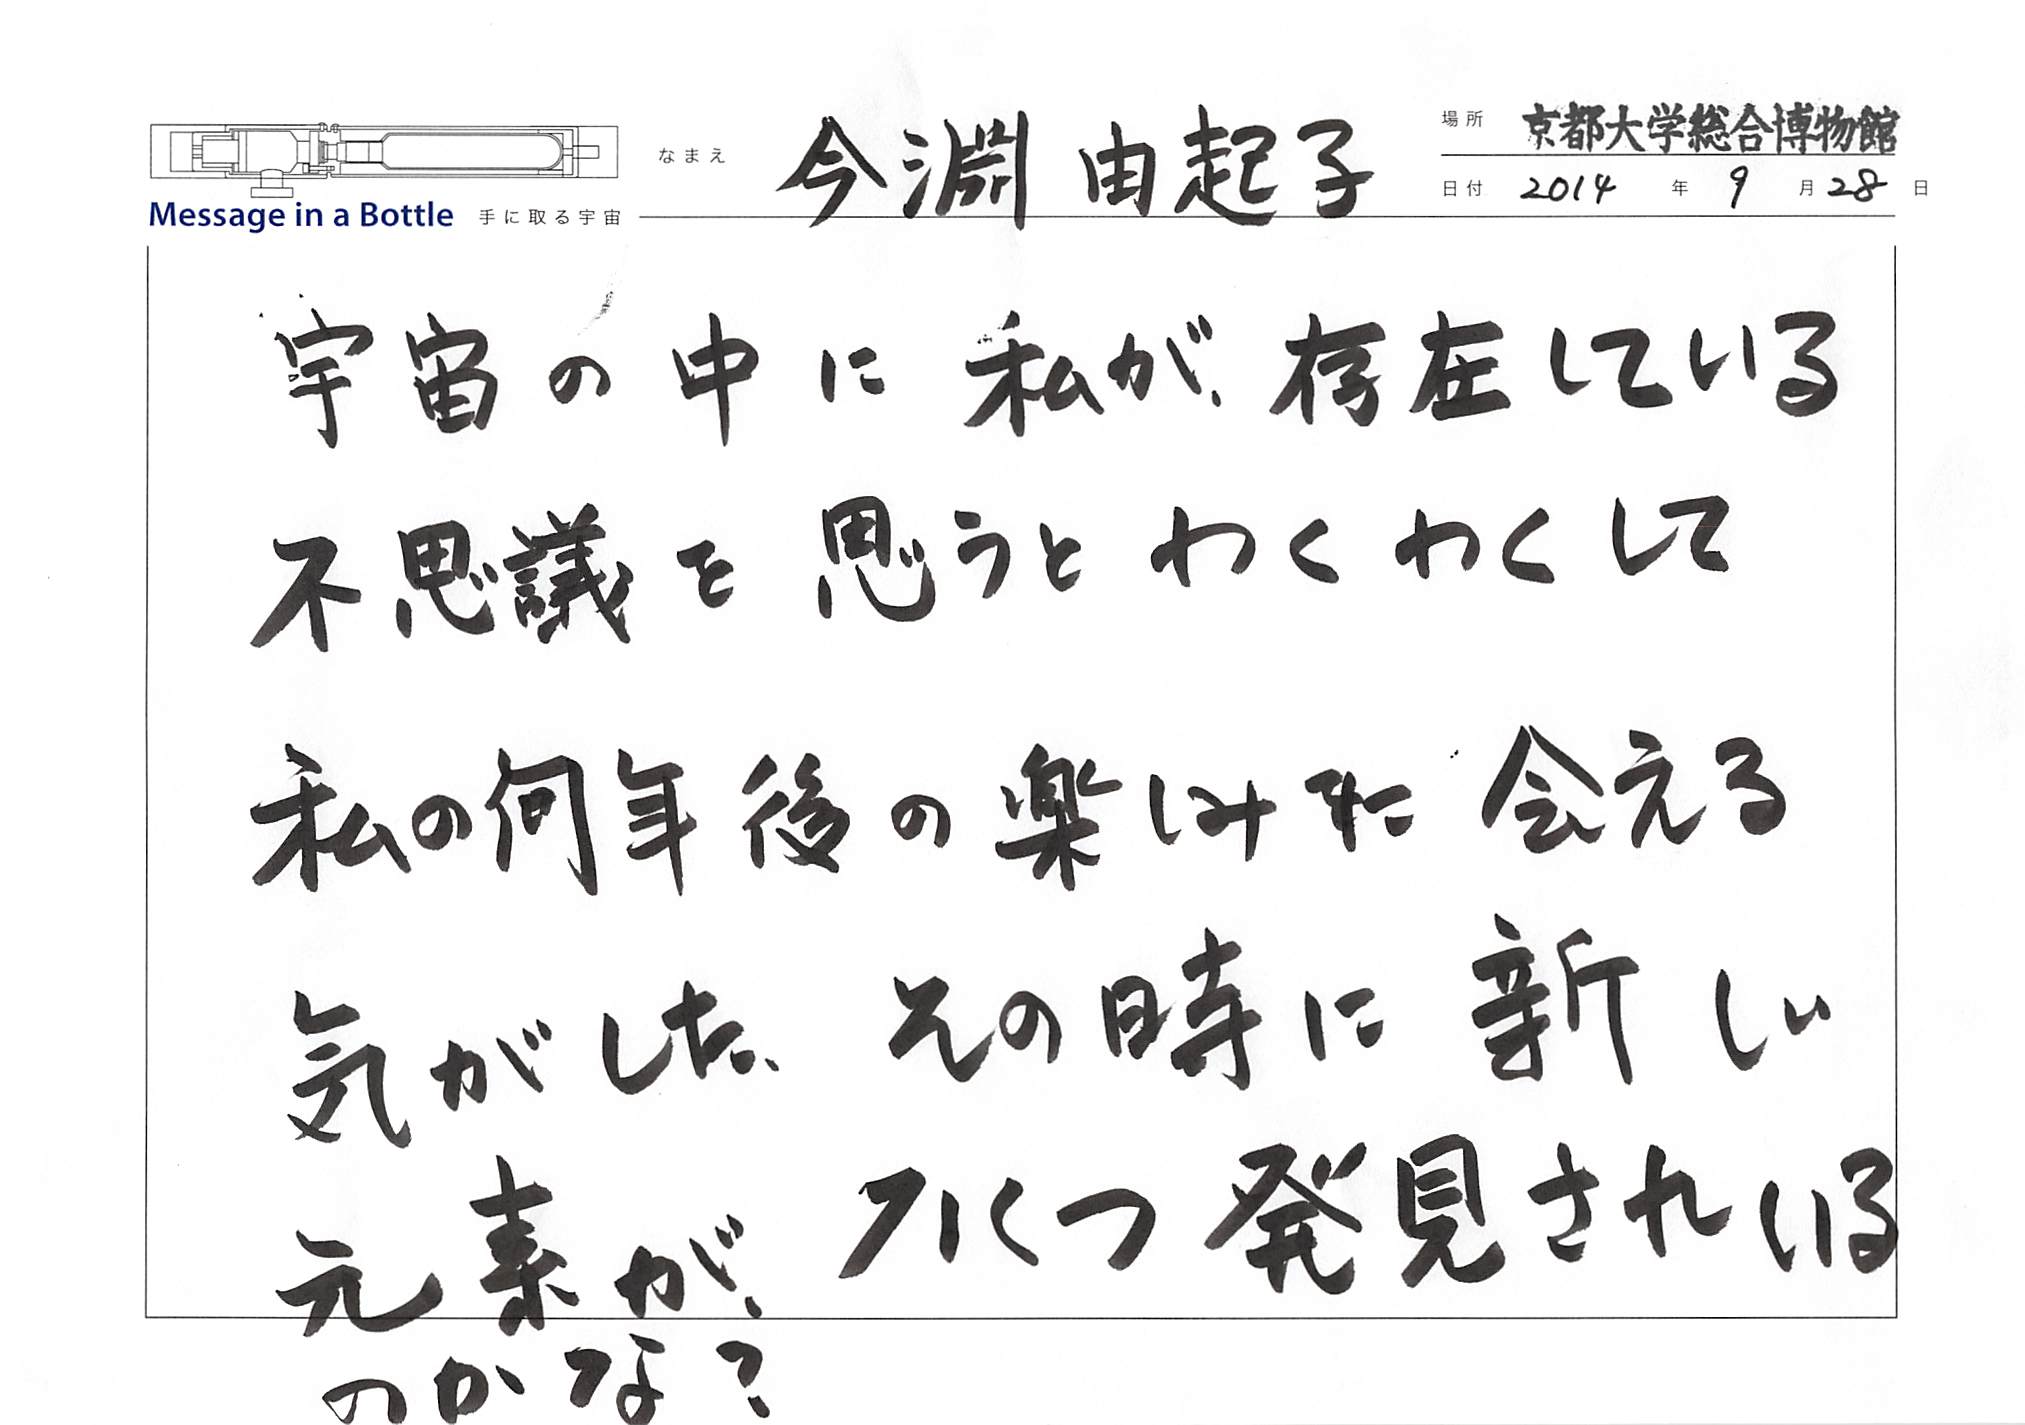 なまえ 今淵 由起子
場所 京都大学総合博物館
日付 2014 年 9 月 28 日
Message in a Bottle 手に取る宇宙
宇宙の中に私が、存在している
不思議を思うとわくわくして
私の何年後の楽しみに会える
気がした、その時に新しい
元素が、いくつ発見されいる
のかな?